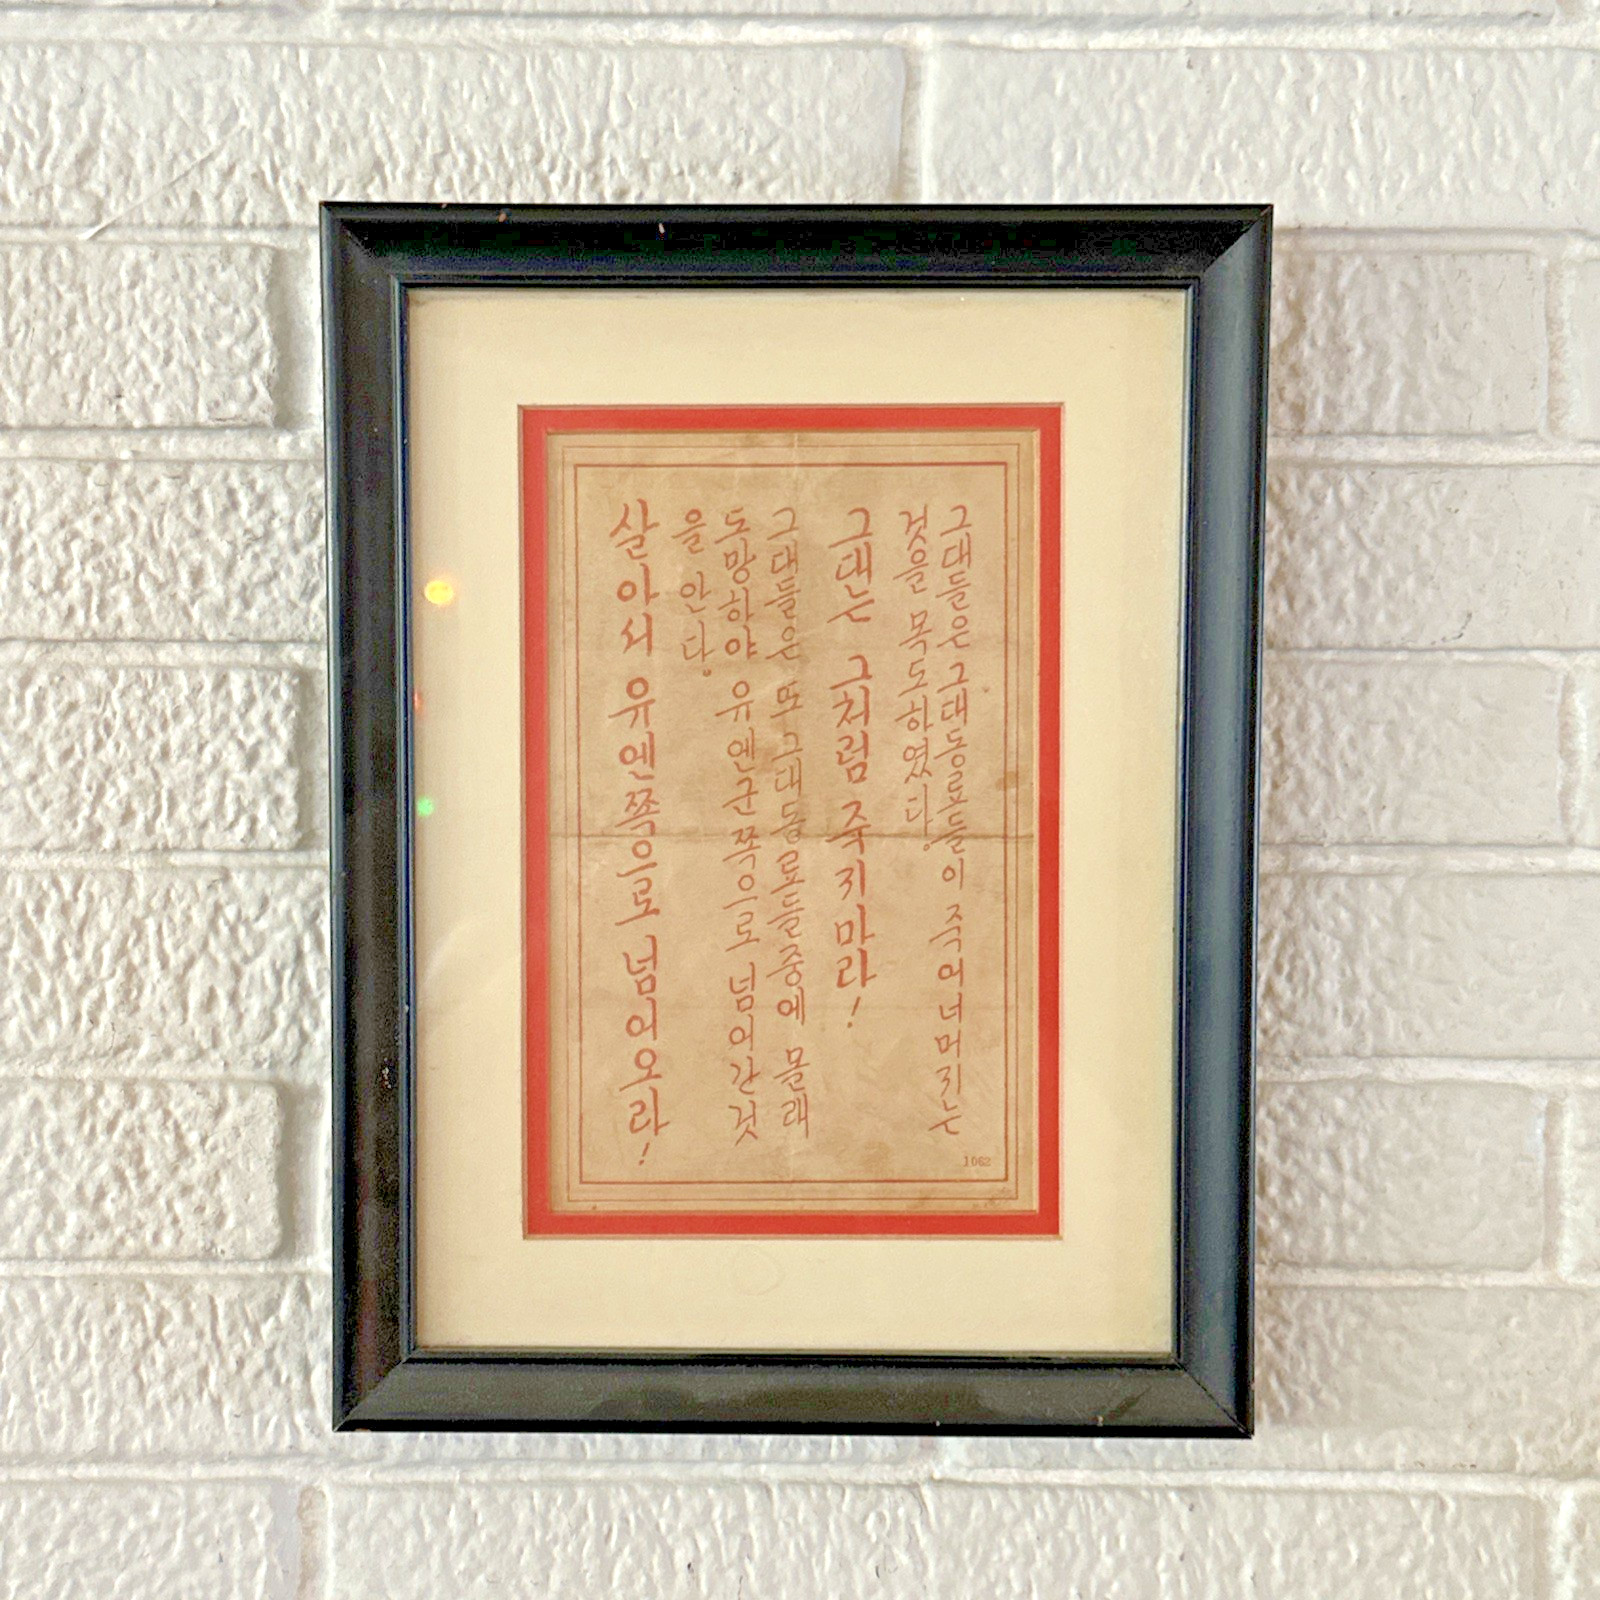 그대들은 그대 동료들이 죽어너머지는
것을 목도하였다。
그대는 그처럼 죽지마라!
그대들은 또 그대 동료들중에 몰래
도망하야 유엔군쪽으로 넘어간것
을 안다。
살아서 유엔쪽으로 넘어오라!
1062